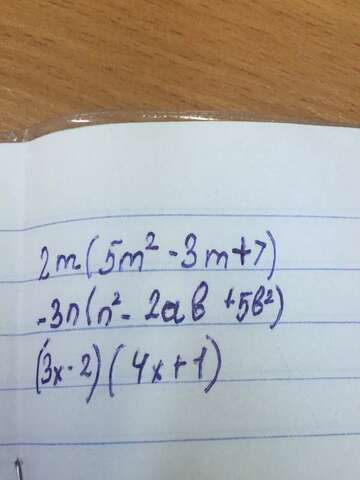 2m(5m² - 3m+7)
-3n(n² - 2ab +5b²)
(3x - 2)(4x+1)